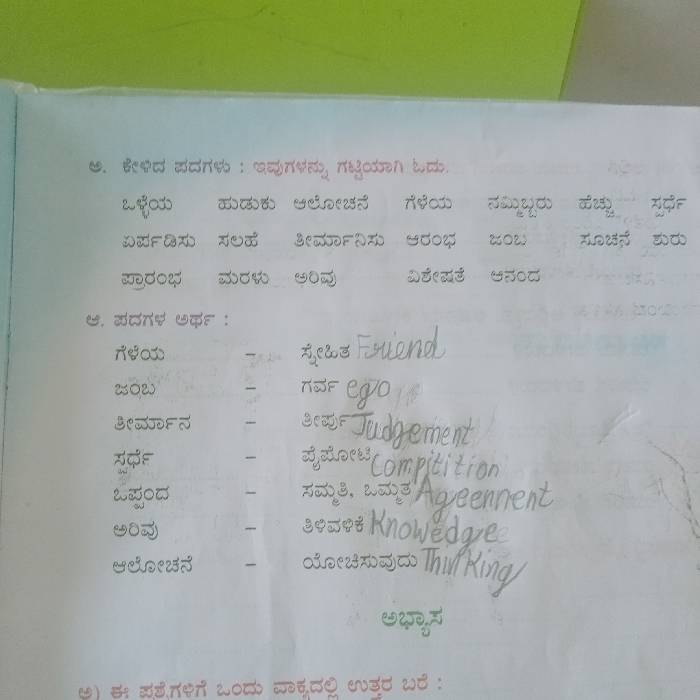 ಅ. ಕೇಳಿದ ಪದಗಳು : ಇವುಗಳನ್ನು ಗಟ್ಟಿಯಾಗಿ ಓದು.
ಒಳ್ಳೆಯ ಹುಡುಕು ಆಲೋಚನೆ ಗೆಳೆಯ ನಮ್ಮಿಬ್ಬರು ಹೆಚ್ಚು ಸ್ಪರ್ಧೆ
ಏರ್ಪಡಿಸು ಸಲಹೆ ತೀರ್ಮಾನಿಸು ಆರಂಭ ಜಂಬ ಸೂಚನೆ ಶುರು
ಪ್ರಾರಂಭ ಮರಳು ಅರಿವು ವಿಶೇಷತೆ ಆನಂದ
ಆ. ಪದಗಳ ಅರ್ಥ :
ಗೆಳೆಯ – ಸ್ನೇಹಿತ Friend
ಜಂಬ – ಗರ್ವ ego
ತೀರ್ಮಾನ – ತೀರ್ಪು Judgement
ಸ್ಪರ್ಧೆ – ಪೈಪೋಟಿ Compitition
ಒಪ್ಪಂದ – ಸಮ್ಮತಿ, ಒಮ್ಮತ Ageenment
ಅರಿವು – ತಿಳಿವಳಿಕೆ Knowedge
ಆಲೋಚನೆ – ಯೋಚಿಸುವುದು Thinking
ಅಭ್ಯಾಸ
ಅ) ಈ ಪ್ರಶ್ನೆಗಳಿಗೆ ಒಂದು ವಾಕ್ಯದಲ್ಲಿ ಉತ್ತರ ಬರೆ :